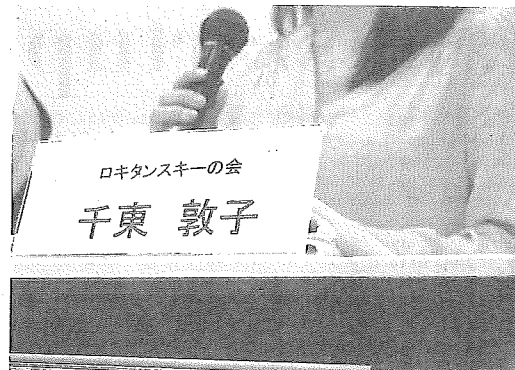 ロキタンスキーの会
千東 敦子